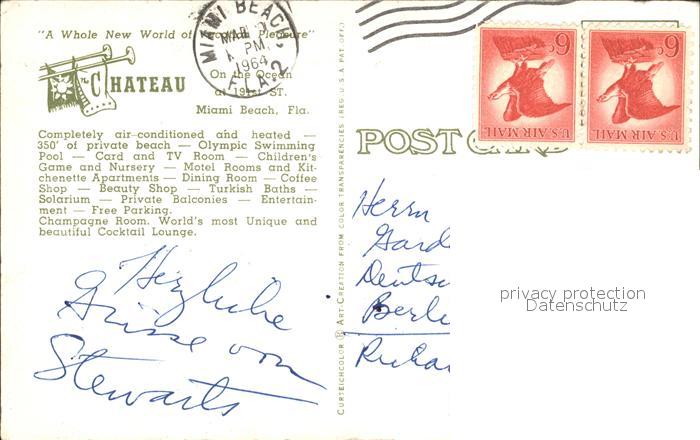 "A Whole New World of Tropical Pleasure"
CHATEAU
On the Ocean
at 191st ST.
Miami Beach, Fla.
Completely air-conditioned and heated —
350' of private beach — Olympic Swimming
Pool — Card and TV Room — Children's
Game and Nursery — Motel Rooms and Kit-
chenette Apartments — Dining Room — Coffee
Shop — Beauty Shop — Turkish Baths —
Solarium — Private Balconies — Entertain-
ment — Free Parking.
Champagne Room. World's most Unique and
beautiful Cocktail Lounge.
Herzliche
Grüsse von
Stewarts
MIAMI BEACH, FLA. 2
MAR
PM
1964
CURTEICHCOLOR ® ART-CREATION FROM COLOR TRANSPARENCIES (REG. U.S.A. PAT. OFF.)
U.S. AIR MAIL 6¢
U.S. AIR MAIL 6¢
POST CARD
Herrn
Gard
Deutsc
Berli
Richar
privacy protection
Datenschutz